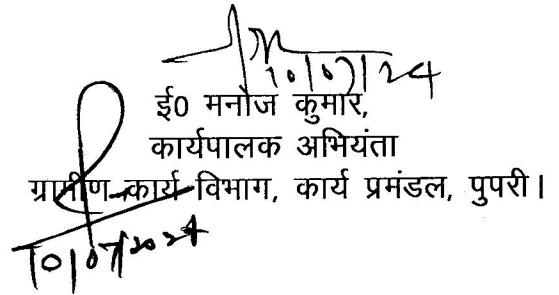 10/07/24
ई0 मनोज कुमार,
कार्यपालक अभियंता
ग्रामीण कार्य विभाग, कार्य प्रमंडल, पुपरी।
10/07/2024